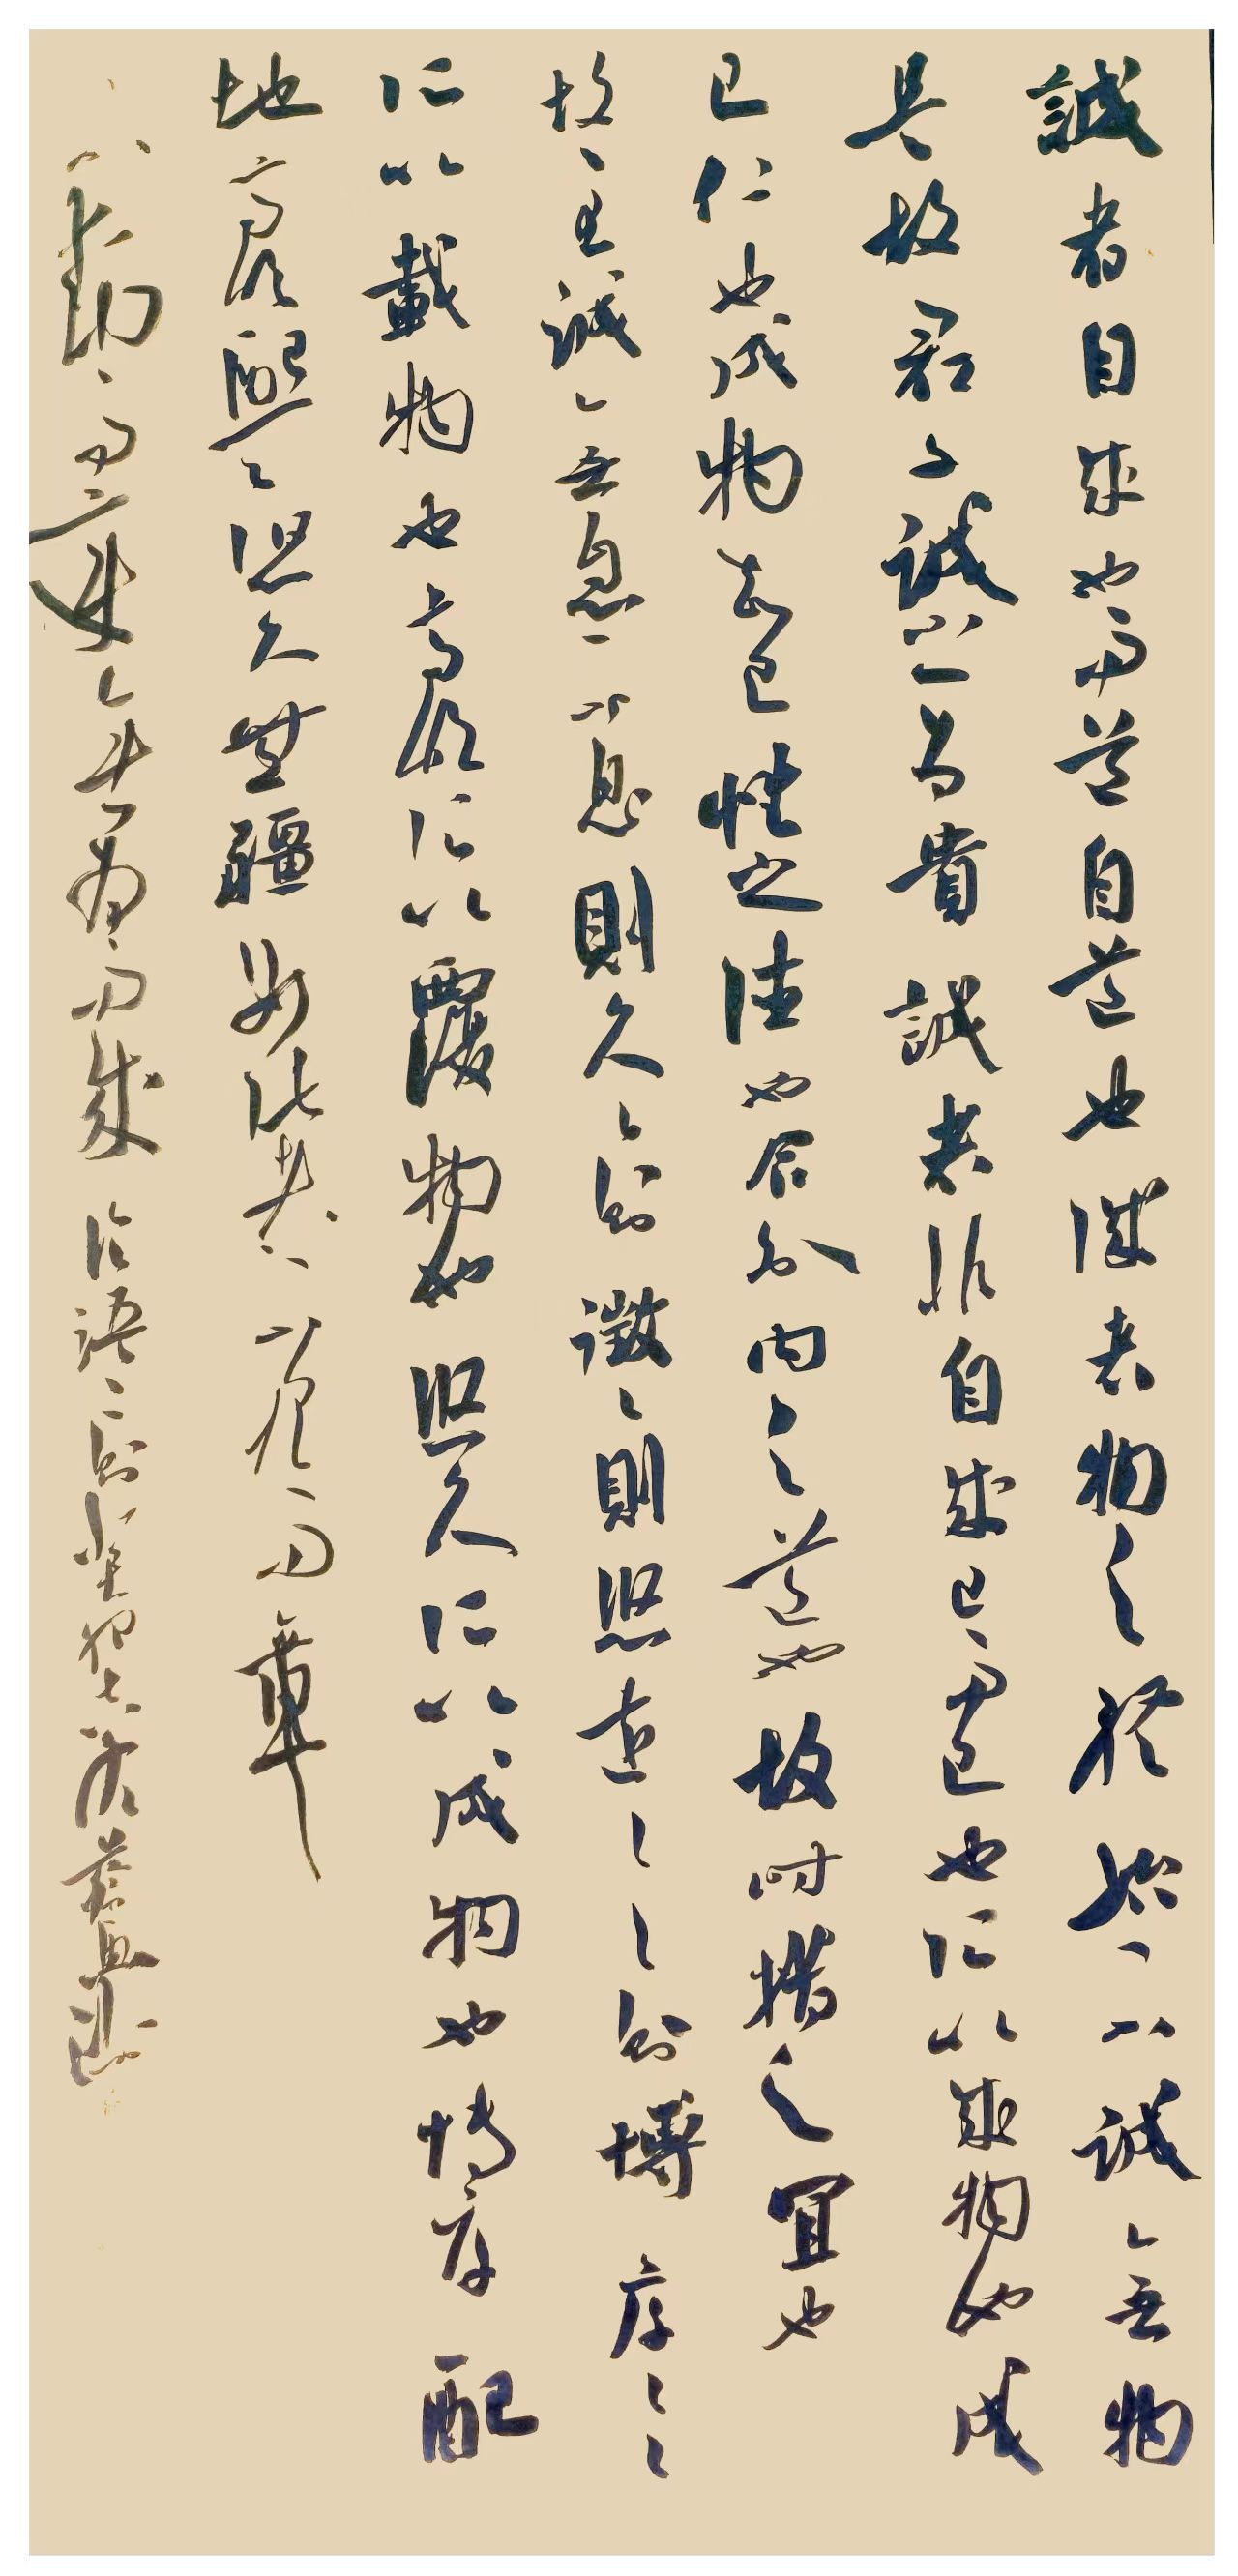 誠者自成也而道自道也誠者物之終始不誠無物
是故君子誠之為貴誠者非自成己而已也所以成物也成
己仁也成物知已性之德也合外內之道也故時措之宜也
故至誠無息不息則久〻則徵〻則悠遠〻〻則博厚〻〻
所以載物也高明所以覆物也悠久所以成物也博厚配
地高明配天悠久無疆如此者不見而章
不動而變無為而成